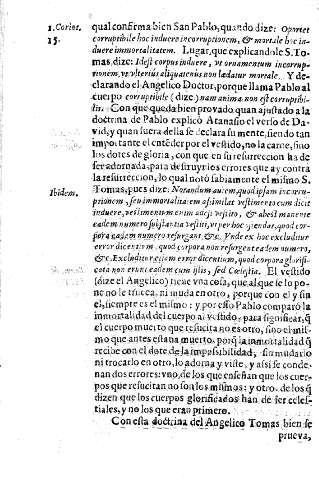 1. Corint.
15.
qual confirma bien San Pablo, quando dize: Oportet
corruptibile hoc induere incorruptionem, & mortale hoc in-
duere immortalitatem. Lugar, que explicandole S. To-
mas, dize: Idest corpus induere, vt ornamentum incorrup-
tionem, vt vlterius aliquatenus non lædatur mortale. Y de-
clarando el Angelico Doctor, porque llama Pablo al
cuerpo corruptibile (dize) nam anima non est corruptibi-
lis. Con que queda bien provado quan ajustado a la
doctrina de Pablo explicò Atanasio el verso de Da-
vid, y quan fuera della se declara su mente, siendo tan
importante el entẽder por el vestido, no la carne, sino
los dotes de gloria, con que en su resurreccion ha de
ser adornada, para destruir los errores que ay contra
la resurreccion, lo qual notò sabiamente el mismo S.
Ibidem.
Tomas, pues dize: Notandum autem, quod ipsam incorru-
ptionem, seu immortalitatem assimilat vestimento cum dicit
induere, vestimentum enim adest vestito, & abest manente
eadem numero substantia vestiti, vt per hoc ostendat, quod cor-
pora eadem numero resurgant &c. Vnde ex hoc excluditur
error dicentium, quod corpora non resurgent eadem numero,
&c. Excluditur etiam error dicentium, quod corpora glorifi-
cata non erunt eadem cum istis, sed Cœlestia. El vestido
(dize el Angelico) tiene vna cosa, que al que se lo po-
ne no le trueca, ni muda en otro, porque con el y sin
el, siempre es el mismo: y por esso Pablo comparò la
inmortalidad del cuerpo al vestido, para significar, q̃
el cuerpo muerto que resucita no es otro, sino el mis-
mo que antes estava muerto, porq̃ la inmortalidad q̃
recibe con el dote de la impassibilidad, sin mudarlo
ni trocarlo en otro, lo adorna y viste, y assi se conde-
nan dos errores: vno, de los que enseñan que los cuer-
pos que resucitan no son los mismos: y otro, de los q̃
dizen que los cuerpos glorificados han de ser celes-
tiales, y no los que eran primero.
Con esta doctrina del Angelico Tomas bien se
prueva,